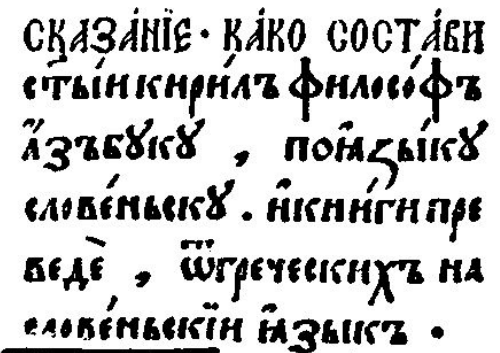 СКАЗА́НЇЕ· КА́КО СОСТА́ВИ
ст҃ы́и кири́лъ филосо́фъ
а҆́збꙋкꙋ , поꙗ҆зы́кꙋ
слове́ньскꙋ . и҆кни́ги пре
ведѐ , ѿгреческихъ на
слове́ньскїи ꙗ҆зыкъ .